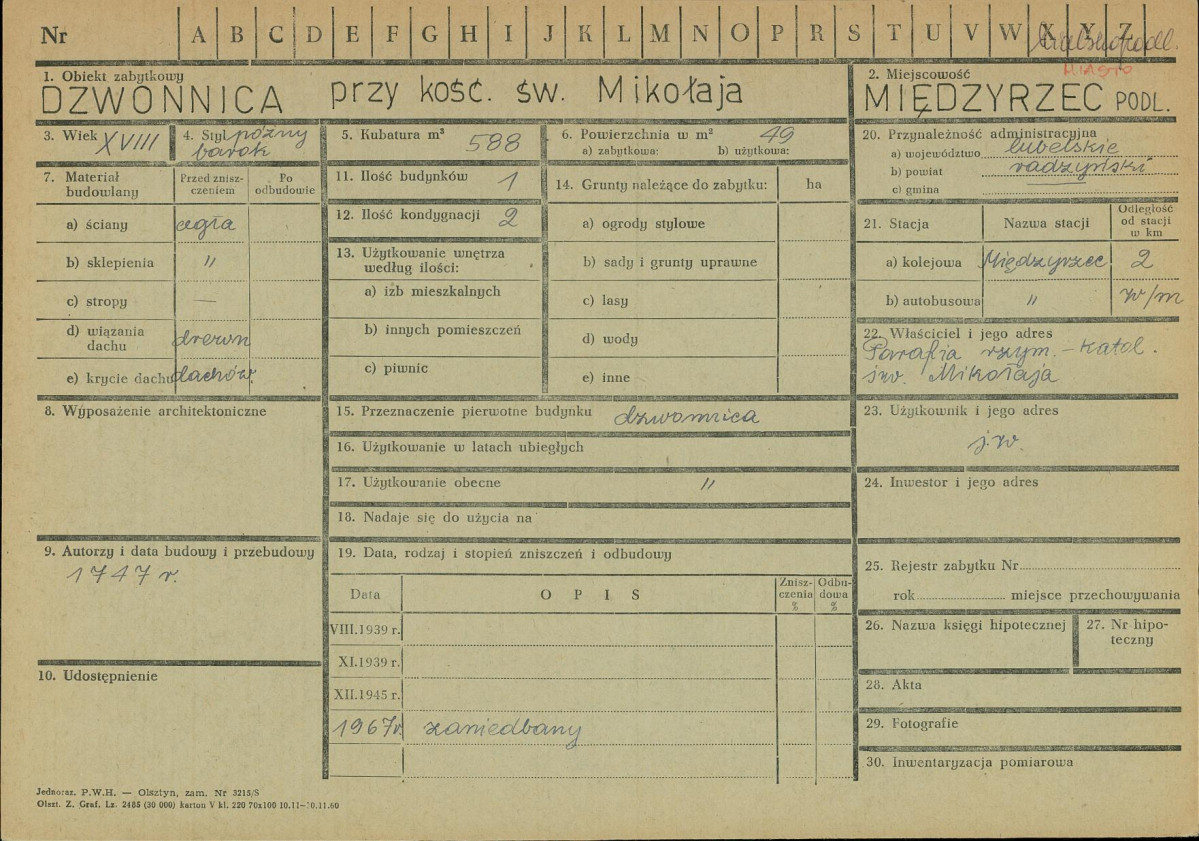 Nr A B C D E F G H I J K L M N O P R S T U V W X Y Z
podl.
MIASTO
1. Obiekt zabytkowy
DZWONNICA przy kość. św. Mikołaja
2. Miejscowość
MIĘDZYRZEC PODL.
3. Wiek XVIII
4. Styl późny
barok
5. Kubatura m³ 588
6. Powierzchnia w m² 49
a) zabytkowa: b) użytkowa:
7. Materiał
budowlany
Przed znisz-
czeniem
Po
odbudowie
a) ściany cegła
b) sklepienia "
c) stropy —
d) wiązania
dachu drewn
e) krycie dachu dachów.
8. Wyposażenie architektoniczne
9. Autorzy i data budowy i przebudowy
1747 r.
10. Udostępnienie
11. Ilość budynków 1
12. Ilość kondygnacji 2
13. Użytkowanie wnętrza
według ilości:
a) izb mieszkalnych
b) innych pomieszczeń
c) piwnic
14. Grunty należące do zabytku: ha
a) ogrody stylowe
b) sady i grunty uprawne
c) lasy
d) wody
e) inne
15. Przeznaczenie pierwotne budynku dzwonnica
16. Użytkowanie w latach ubiegłych
17. Użytkowanie obecne "
18. Nadaje się do użycia na
19. Data, rodzaj i stopień zniszczeń i odbudowy
Data OPIS Znisz-
czenia
% Odbu-
dowa
%
VIII.1939 r.
XI.1939 r.
XII.1945 r.
1967r. zaniedbany
20. Przynależność administracyjna
a) województwo lubelskie
b) powiat radzyński
c) gmina
21. Stacja Nazwa stacji Odległość
od stacji
w km
a) kolejowa Międzyrzec 2
b) autobusowa " w/m
22. Właściciel i jego adres
Parafia rzym.-katol.
św. Mikołaja
23. Użytkownik i jego adres
j.w.
24. Inwestor i jego adres
25. Rejestr zabytku Nr
rok miejsce przechowywania
26. Nazwa księgi hipotecznej
27. Nr hipo-
teczny
28. Akta
29. Fotografie
30. Inwentaryzacja pomiarowa
Jednoraz. P.W.H. — Olsztyn, zam. Nr 3215/S
Olszt. Z. Graf. Lz. 2485 (30 000) karton V kl. 220 70x100 10.11–10.11.60